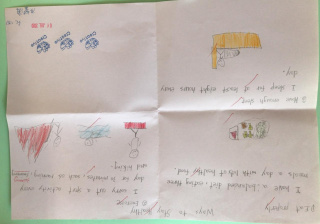 Ways to Stay Healthy
① Exercise
I carry out a sport activity every
day for 30 minutes, such as
and hiking.
② Eat properly
I have a balanced diet, eating three
meals a day with lots of healthy food.
③ Have enough sleep
I sleep for at least eight hours every
day.